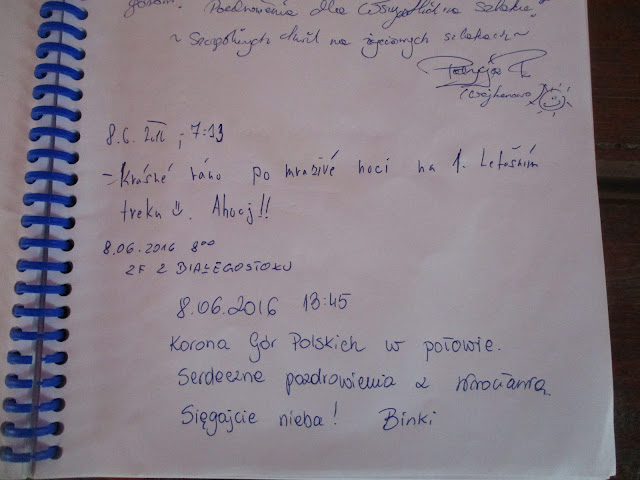 górom. Pozdrowienia dla Wszystkich na szlaku.
~ Szczęśliwych chwil na życiowych szlakach ~
Patrycja R.
(Wejherowo)
8.6. 2016 ; 7:13
- Krásné ráno po mrazivé noci na 1. letošním
treku. Ahooj!!
8.06.2016 8⁰⁰
2F Z BIAŁEGOSTOKU
8.06.2016 13:45
Korona Gór Polskich w połowie.
Serdeczne pozdrowienia z Wrocławia
Sięgajcie nieba! Binki